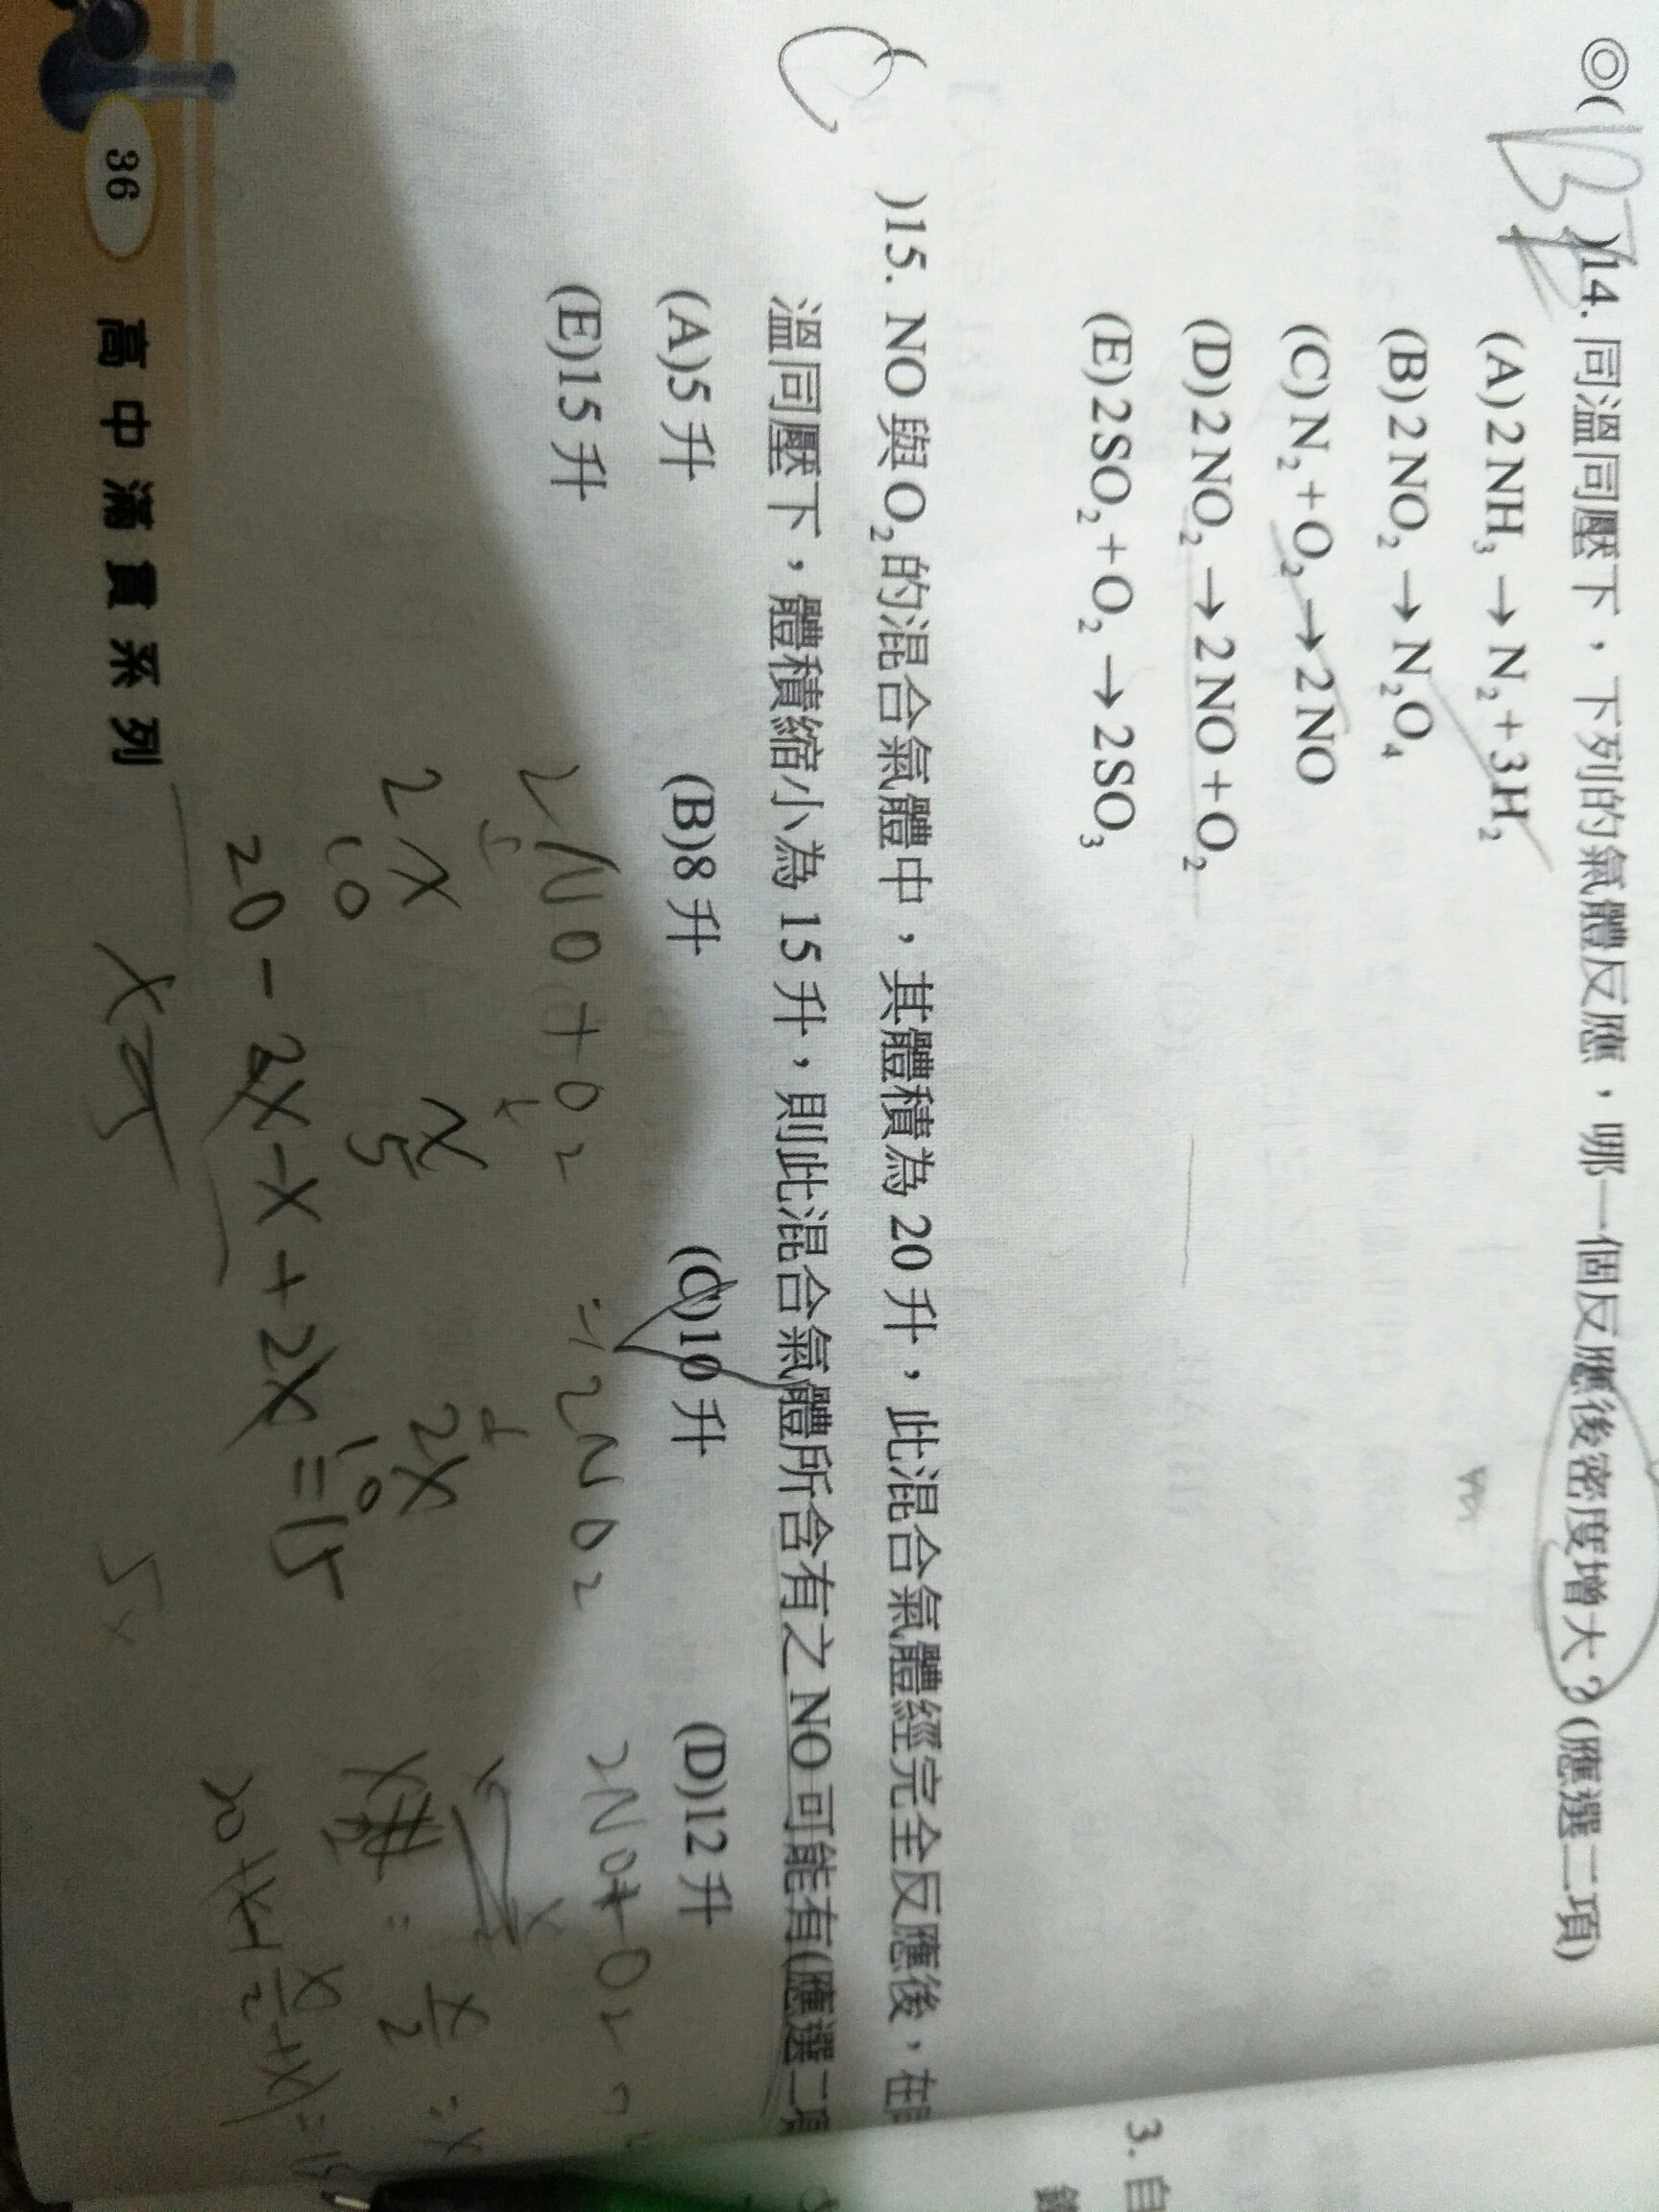 ◎( BE )14. 同溫同壓下，下列的氣體反應，哪一個反應後密度增大？(應選二項)
(A)2NH₃→N₂+3H₂
(B)2NO₂→N₂O₄
(C)N₂+O₂→2NO
(D)2NO₂→2NO+O₂
(E)2SO₂+O₂→2SO₃
( C )15. NO與O₂的混合氣體中，其體積為20升，此混合氣體經完全反應後，在
溫同壓下，體積縮小為15升，則此混合氣體所含有之NO可能有(應選二項
(A)5升 (B)8升 (C)10升 (D)12升
(E)15升
2NO+O₂ → 2NO₂
2x x 2x
10 5 10
20-2x-x+2x=15
x=5
2NO+O₂
36 高中滿貫系列
3. 自